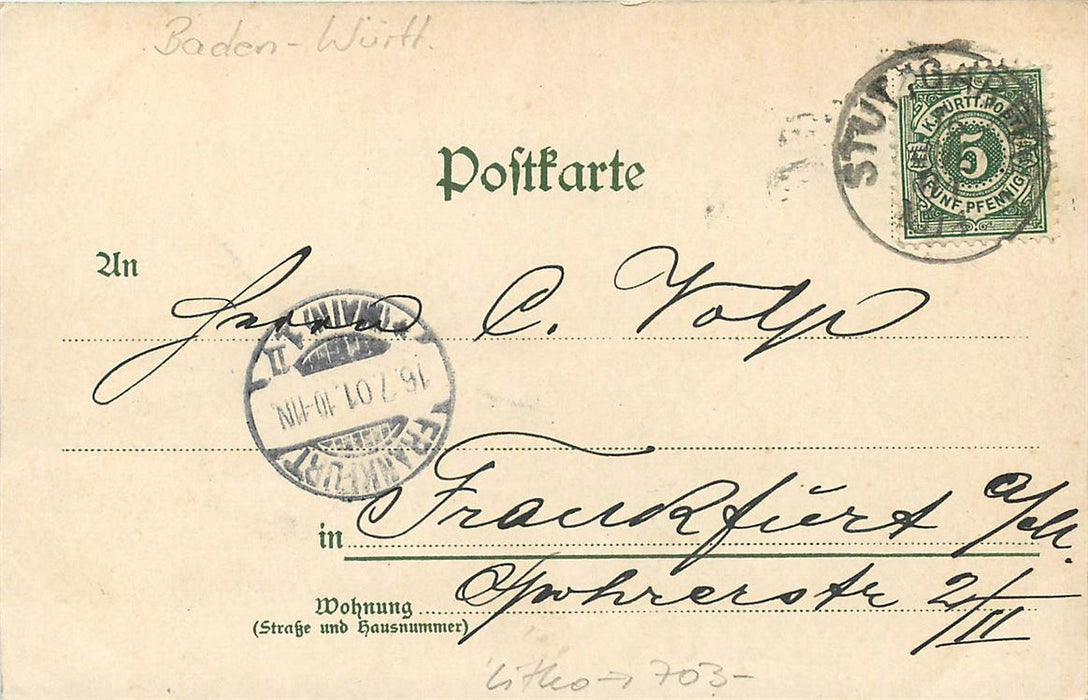 Baden-Württ.
STUTTGART
K.WÜRTT.POST
5
FÜNF PFENNIG
Postkarte
An
Herrn C. Volp
FRANKFURT (MAIN) 1
16.7.01. 10-11N.
II
in Frankfurt a/M.
Wohnung
(Straße und Hausnummer)
Spohrerstr 2/II
Litho 703-